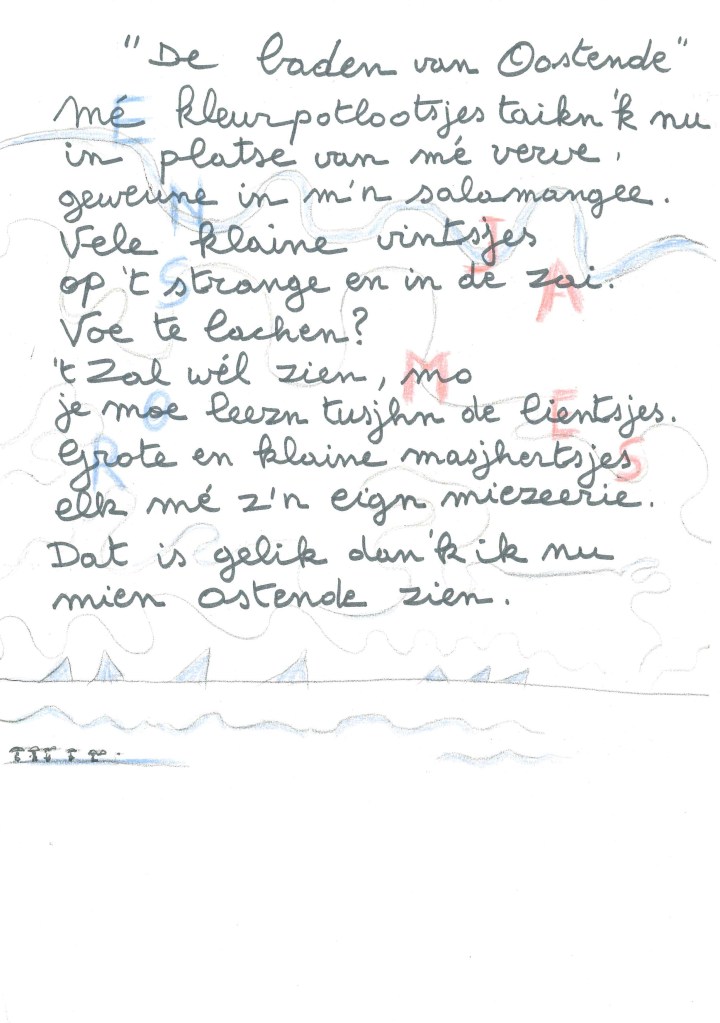 "De baden van Oostende"
Mé kleurpotlootsjes taikn 'k nu
in platse van mé verve,
geweune in m'n salamangee.
Vele klaine vintsjes
op 't strange en in de zai.
Voe te lachen?
't Zal wél zien, mo
je moe leezn tusjhn de lientsjes.
Grote en klaine masjhertsjes
elk mé z'n eign miezeerie.
Dat is gelik dan 'k ik nu
mien Ostende zien.
JAMES
ENSOR